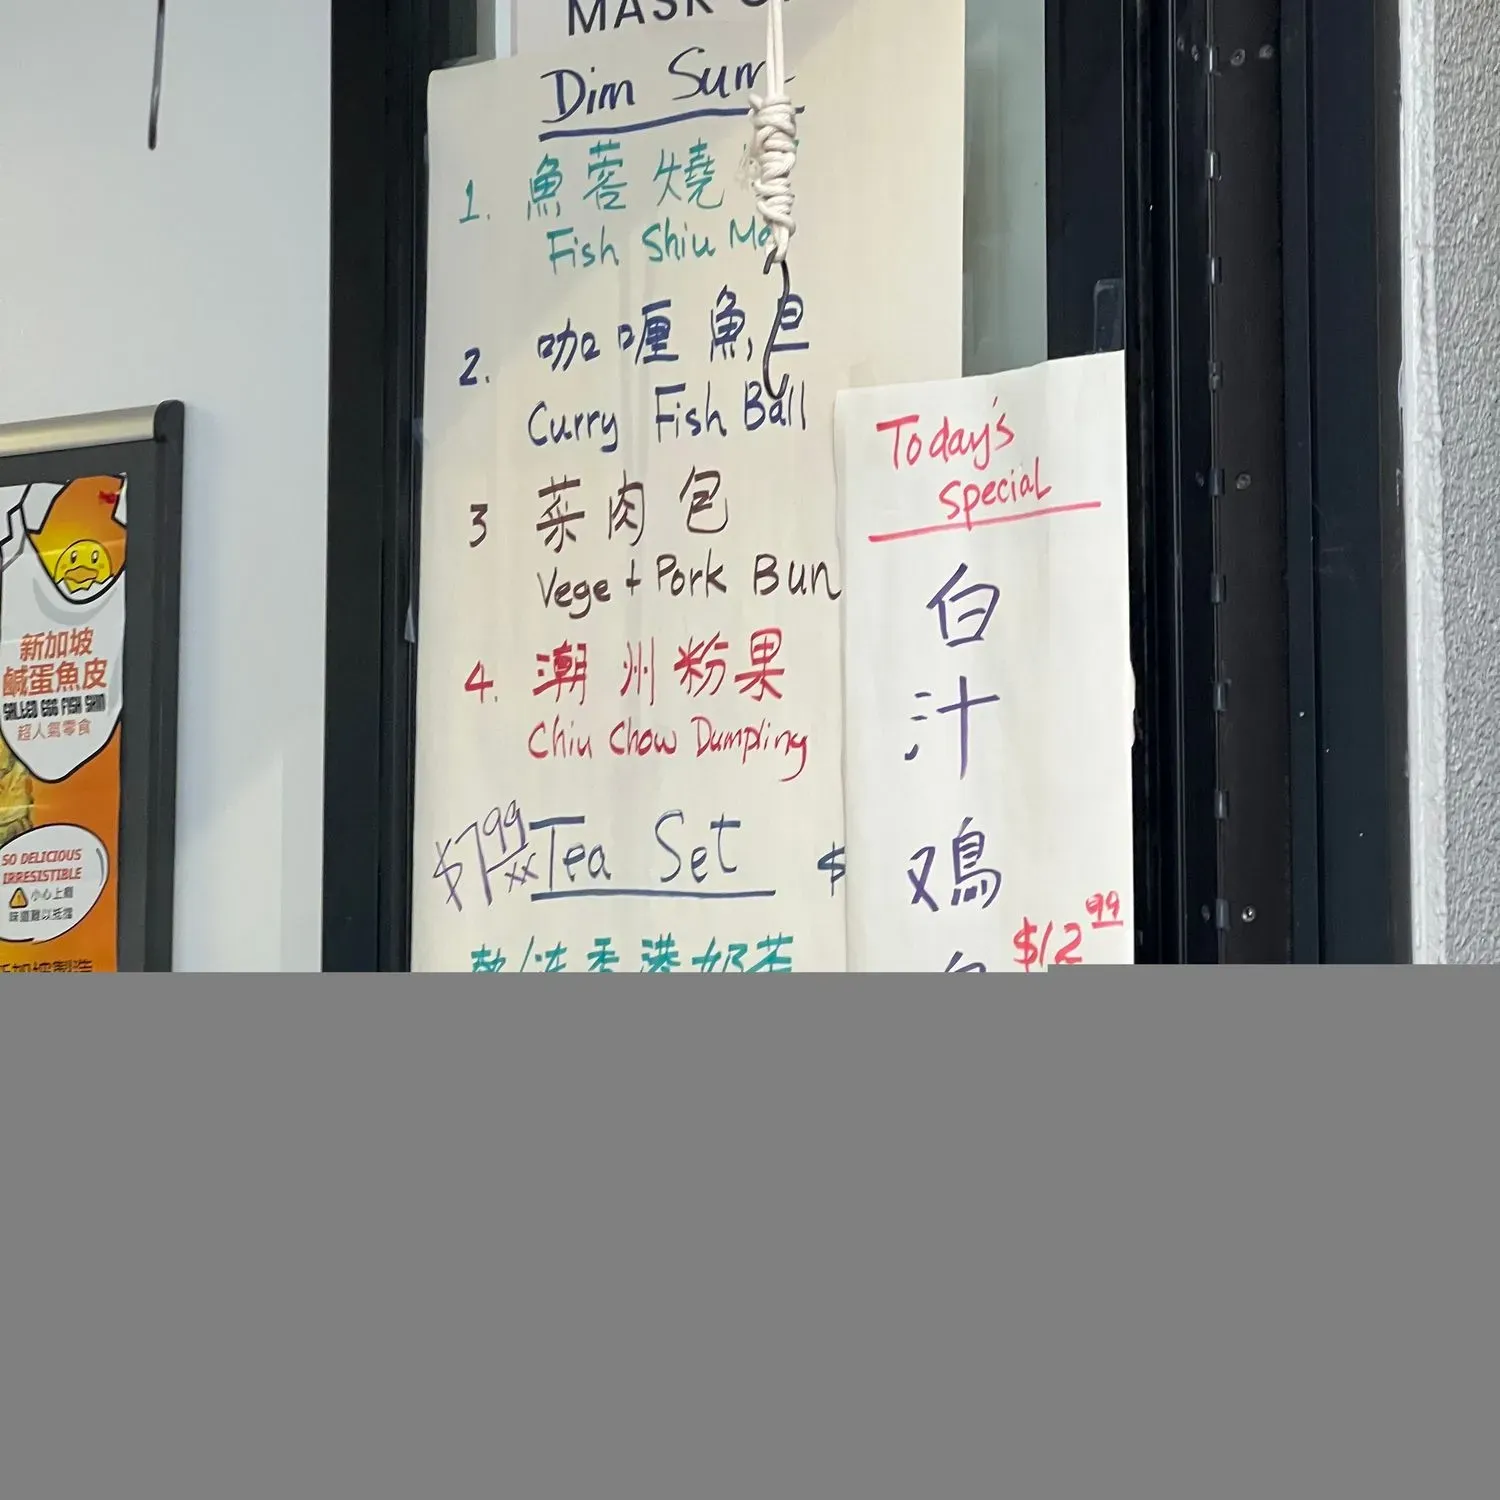 MASK
Dim Sum
1. 魚蓉燒
Fish Shiu Ma
2. 咖喱魚旦
Curry Fish Ball
3 菜肉包
Vege + Pork Bun
4. 潮州粉果
Chiu Chow Dumpling
$7.99
Tea Set $
香港奶茶
Today's
Special
白
汁
鸡
$12.99
新加坡
鹹蛋魚皮
SALTED EGG FISH SKIN
超人氣零食
SO DELICIOUS
IRRESISTIBLE
小心上癮
味道難以抵擋
新加坡製造